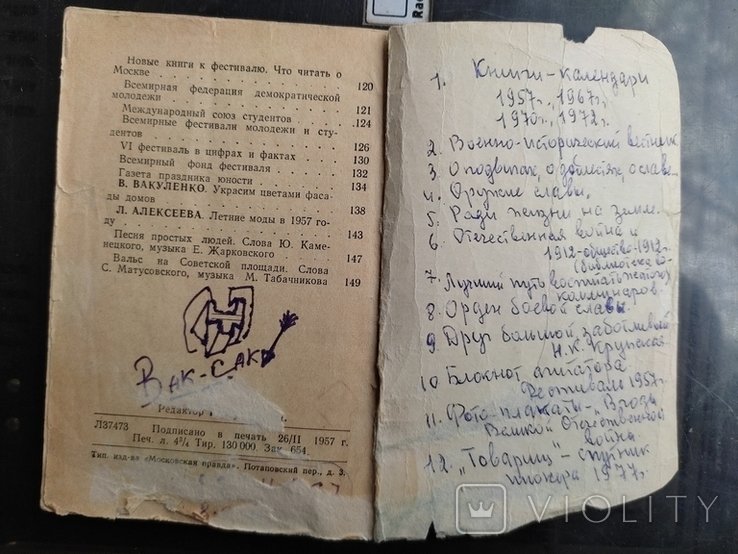 Новые книги к фестивалю. Что читать о
Москве . . . 120
Всемирная федерация демократической
молодежи . . . 121
Международный союз студентов . . . 124
Всемирные фестивали молодежи и сту-
дентов . . . 126
VI фестиваль в цифрах и фактах . . . 130
Всемирный фонд фестиваля . . . 132
Газета праздника юности . . . 134
В. ВАКУЛЕНКО. Украсим цветами фаса-
ды домов . . . 138
Л. АЛЕКСЕЕВА. Летние моды в 1957 го-
ду . . . 143
Песня простых людей. Слова Ю. Каме-
нецкого, музыка Е. Жарковского . . . 147
Вальс на Советской площади. Слова
С. Матусовского, музыка М. Табачникова 149
ВАК-САК
Редактор
Л37473 Подписано в печать 26/II 1957 г.
Печ. л. 4¾ Тир. 130 000. Зак. 654.
Тип. изд-ва «Московская правда». Потаповский пер., д. 3.
1. Книги-календари
1957г., 1967г.
1970г., 1972г.
2. Военно-исторический вестник
3. О подвигах, о доблестях, о славе
4. Оружие славы.
5. Ради жизни на земле.
6. Отечественная война и
1912-общество-1912г.
(библиотека
7. Лучший путь
коммунаров.
8. Орден боевой славы.
9 Друг большой, заботливый
Н.К. Крупская.
10 Блокнот агитатора
Фестивалю 1957г.
11. Фото-плакаты-„В годы
Великой Отечественной
война
12. „Товарищ"-спутник
пионера 1977г.
VIOLITY